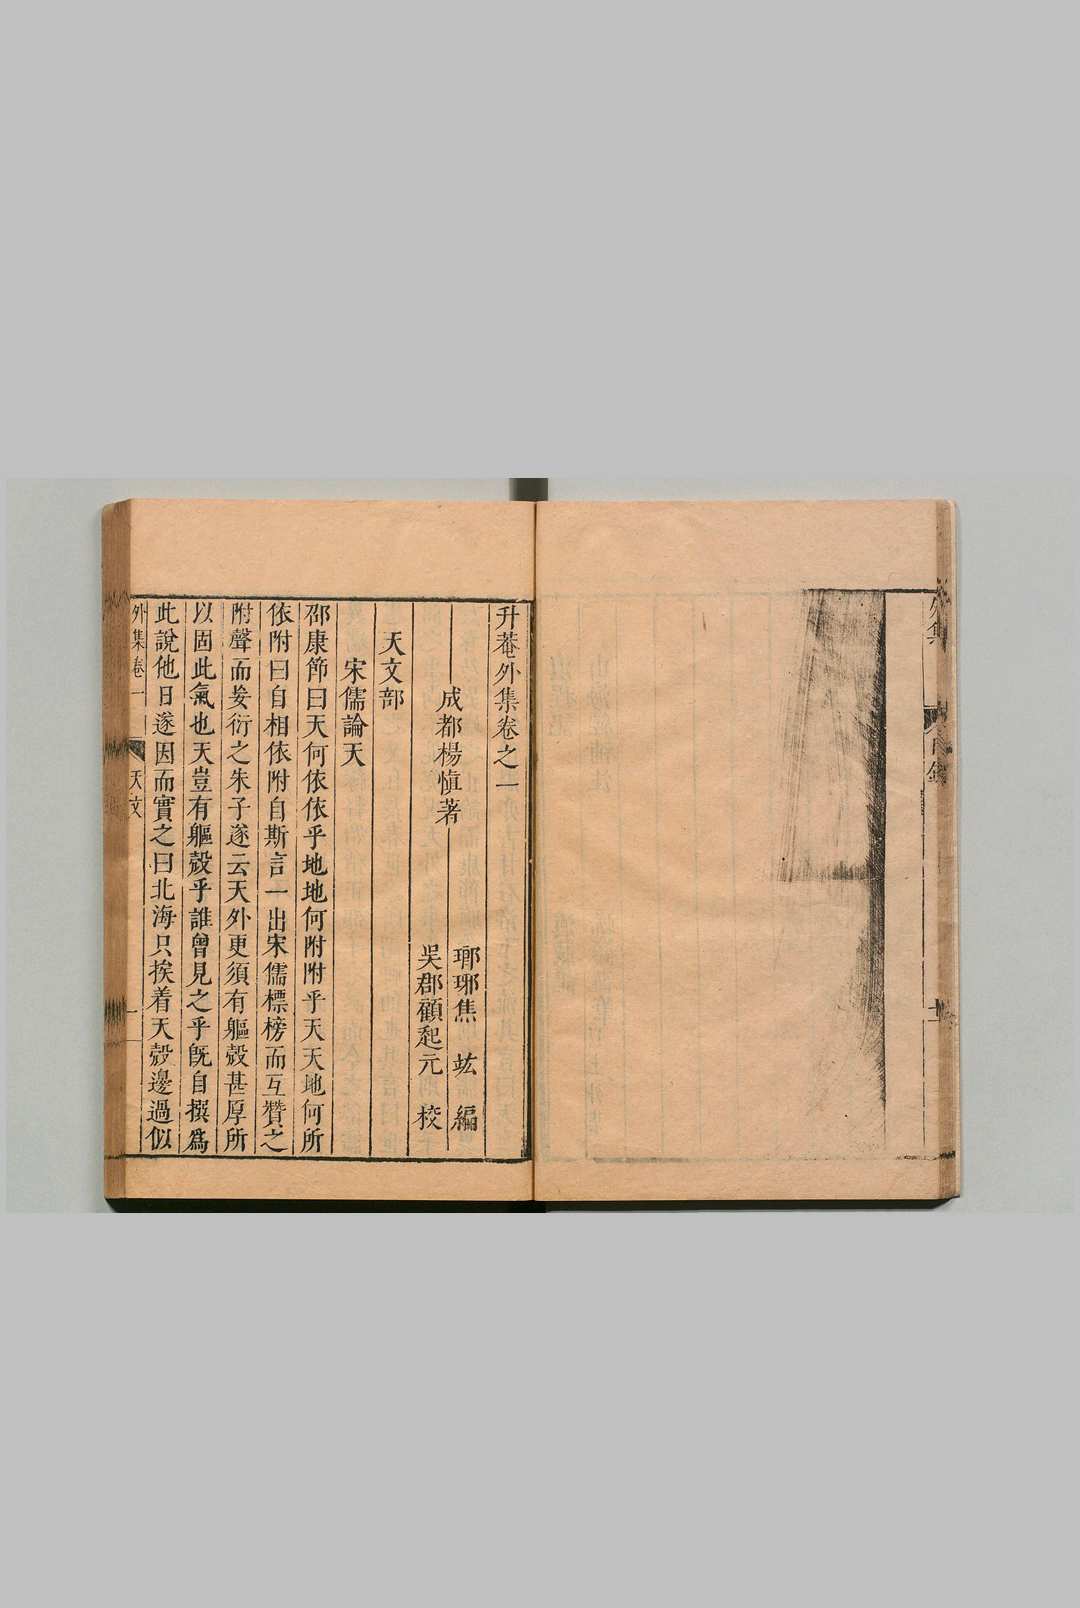 外集
目錄
升菴外集卷之一
成都楊慎著
瑯琊焦竑編
吳郡顧起元校
天文部
宋儒論天
邵康節曰天何依依乎地地何附附乎天天地何所
依附曰自相依附自斯言一出宋儒標榜而互贊之
附聲而妄衍之朱子遂云天外更須有軀殼甚厚所
以固此氣也天豈有軀殼乎誰曾見之乎既自撰爲
此說他日遂因而實之曰北海只挨着天殼邊過似
外集卷一
天文
一